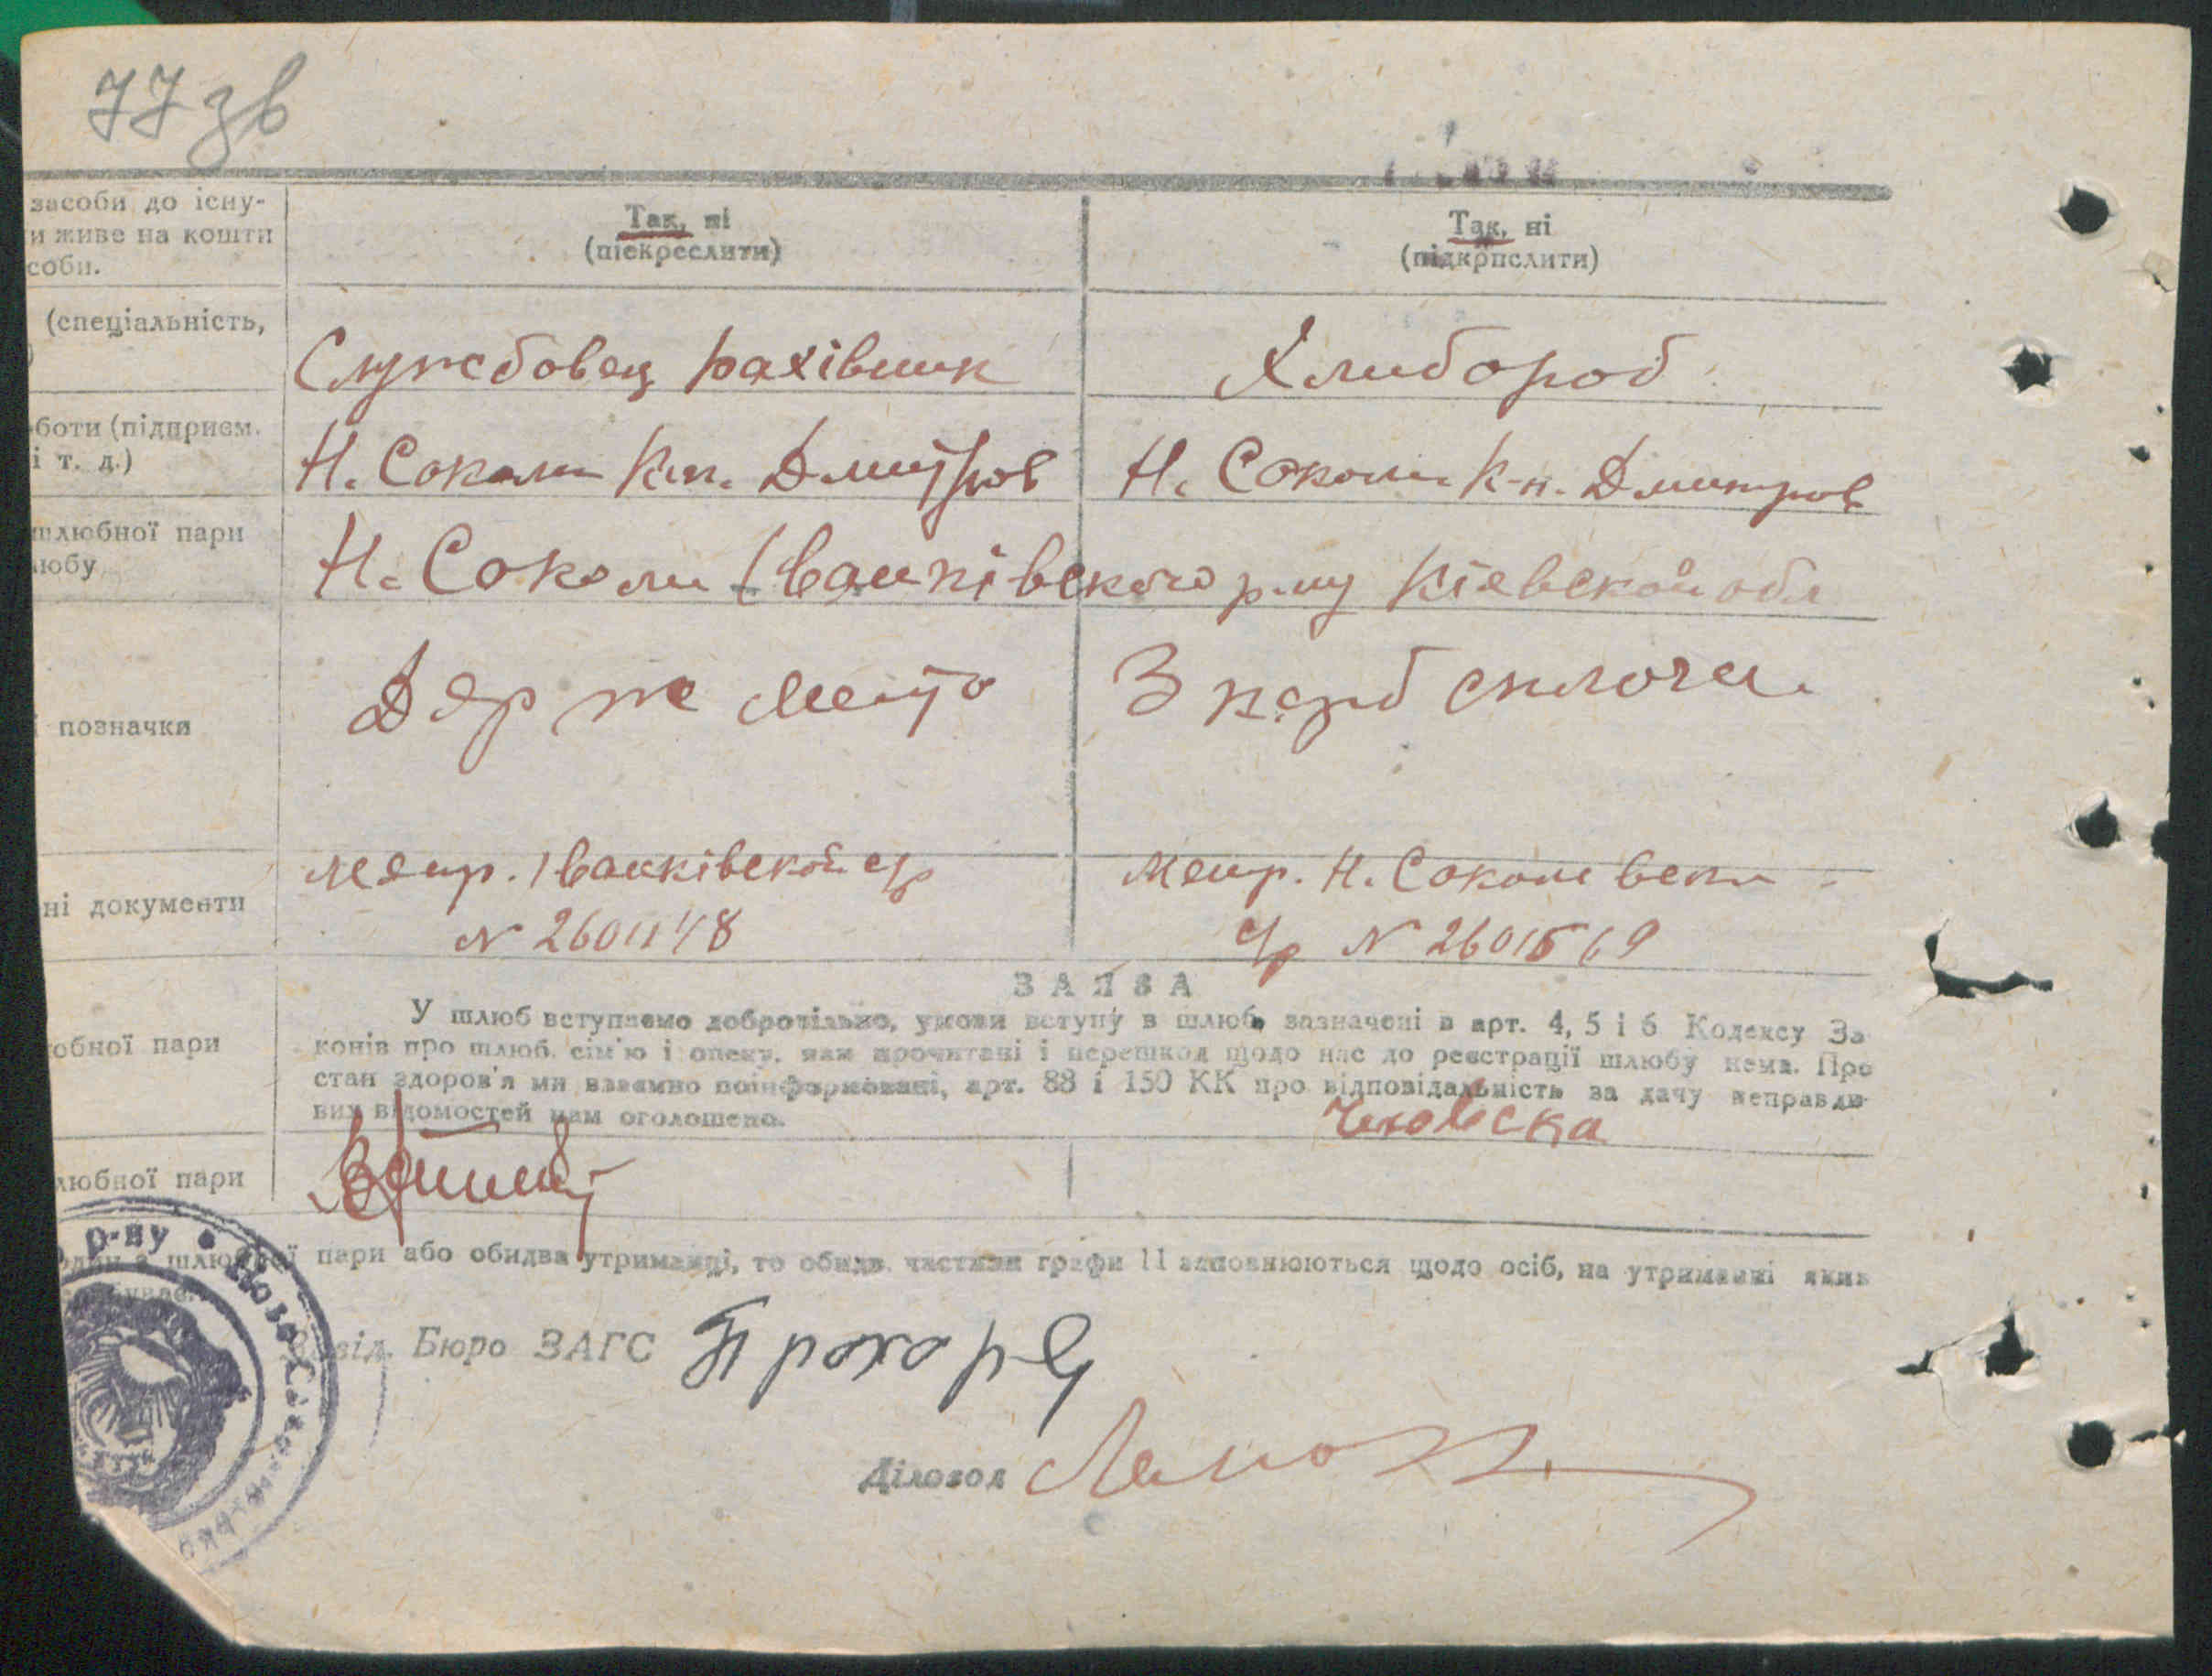 77 зв
засоби до існу-
и живе на кошти
соби.
Так, ні
(піекреслити)
Так, ні
(підкрпслити)
(спеціальність,
)
Службовец рахівник
Хлибороб
боти (підприєм.
і т. д.)
Н. Соколи К-п. Дмитров
Н. Соколи К-п. Дмитров
шлюбної пари
любу
Н. Соколи Іванківского р-ну Кіевской обл
позначки
Держ мито
3 карб сплочен.
ні документи
Іванківской с/р
№ 2601148
Н. Соколевски
с/р № 2601569
ЗАЯВА
обної пари
У шлюб вступаємо добровільно, умови вступу в шлюб, зазначені в арт. 4, 5 і 6 Кодексу За
конів про шлюб, сім'ю і опеку, нам прочитані і перешкод щодо нас до реєстрації шлюбу нема. Про
стан здоров'я ми взаємно поінформовані, арт. 88 і 150 КК про відповідальність за дачу неправди-
вих відомостей нам оголошено.
любної пари
р-ну
один з шлюбної пари або обидва утриманці, то обидв. частини графи 11 заповнюються щодо осіб, на утриманні яких
буває.
Завід. Бюро ЗАГС Прохорец
Діловод